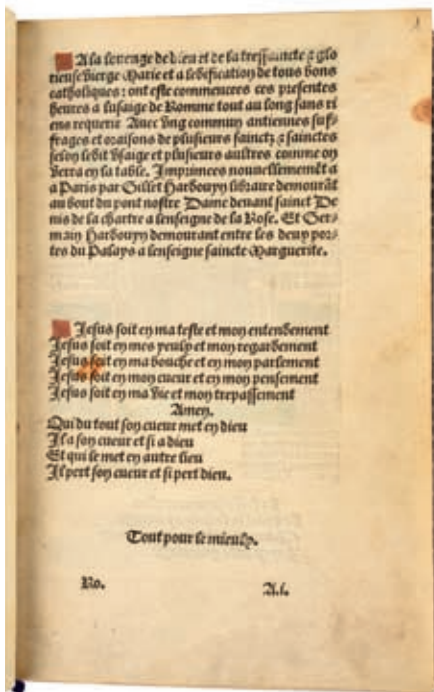 A la louenge de dieu et de la tressaincte ⁊ glo
rieuse vierge Marie et a ledification de tous bons
catholiques: ont este commencees ces presentes
heures a lusaige de Romme tout au long sans ri
ens requerir Avec ung commun antiennes suf-
frages et oraisons de plusieurs sainctz ⁊ sainctes
selon ledit usaige et plusieurs aultres comme on
verra en la table. Imprimees nouvellemēt a
a Paris par Gillet Hardouyn libraire demourāt
au bout du pont nostre Dame devant sainct De
nis de la chartre a lenseigne de la Rose. Et Ger-
main Hardouyn demourant entre les deux por-
tes du Palays a lenseigne saincte Marguerite.
Jesus soit en ma teste et mon entendement
Jesus soit en mes yeulx et mon regardement
Jesus soit en ma bouche et en mon parlement
Jesus soit en mon cueur et en mon pensement
Jesus soit en ma vie et mon trepassement
Amen.
Qui du tout son cueur met en dieu
Il a son cueur et si a dieu
Et qui le met en autre lieu
Il pert son cueur et si pert dieu.
Tout pour le mieulx.
Ro. A.i.